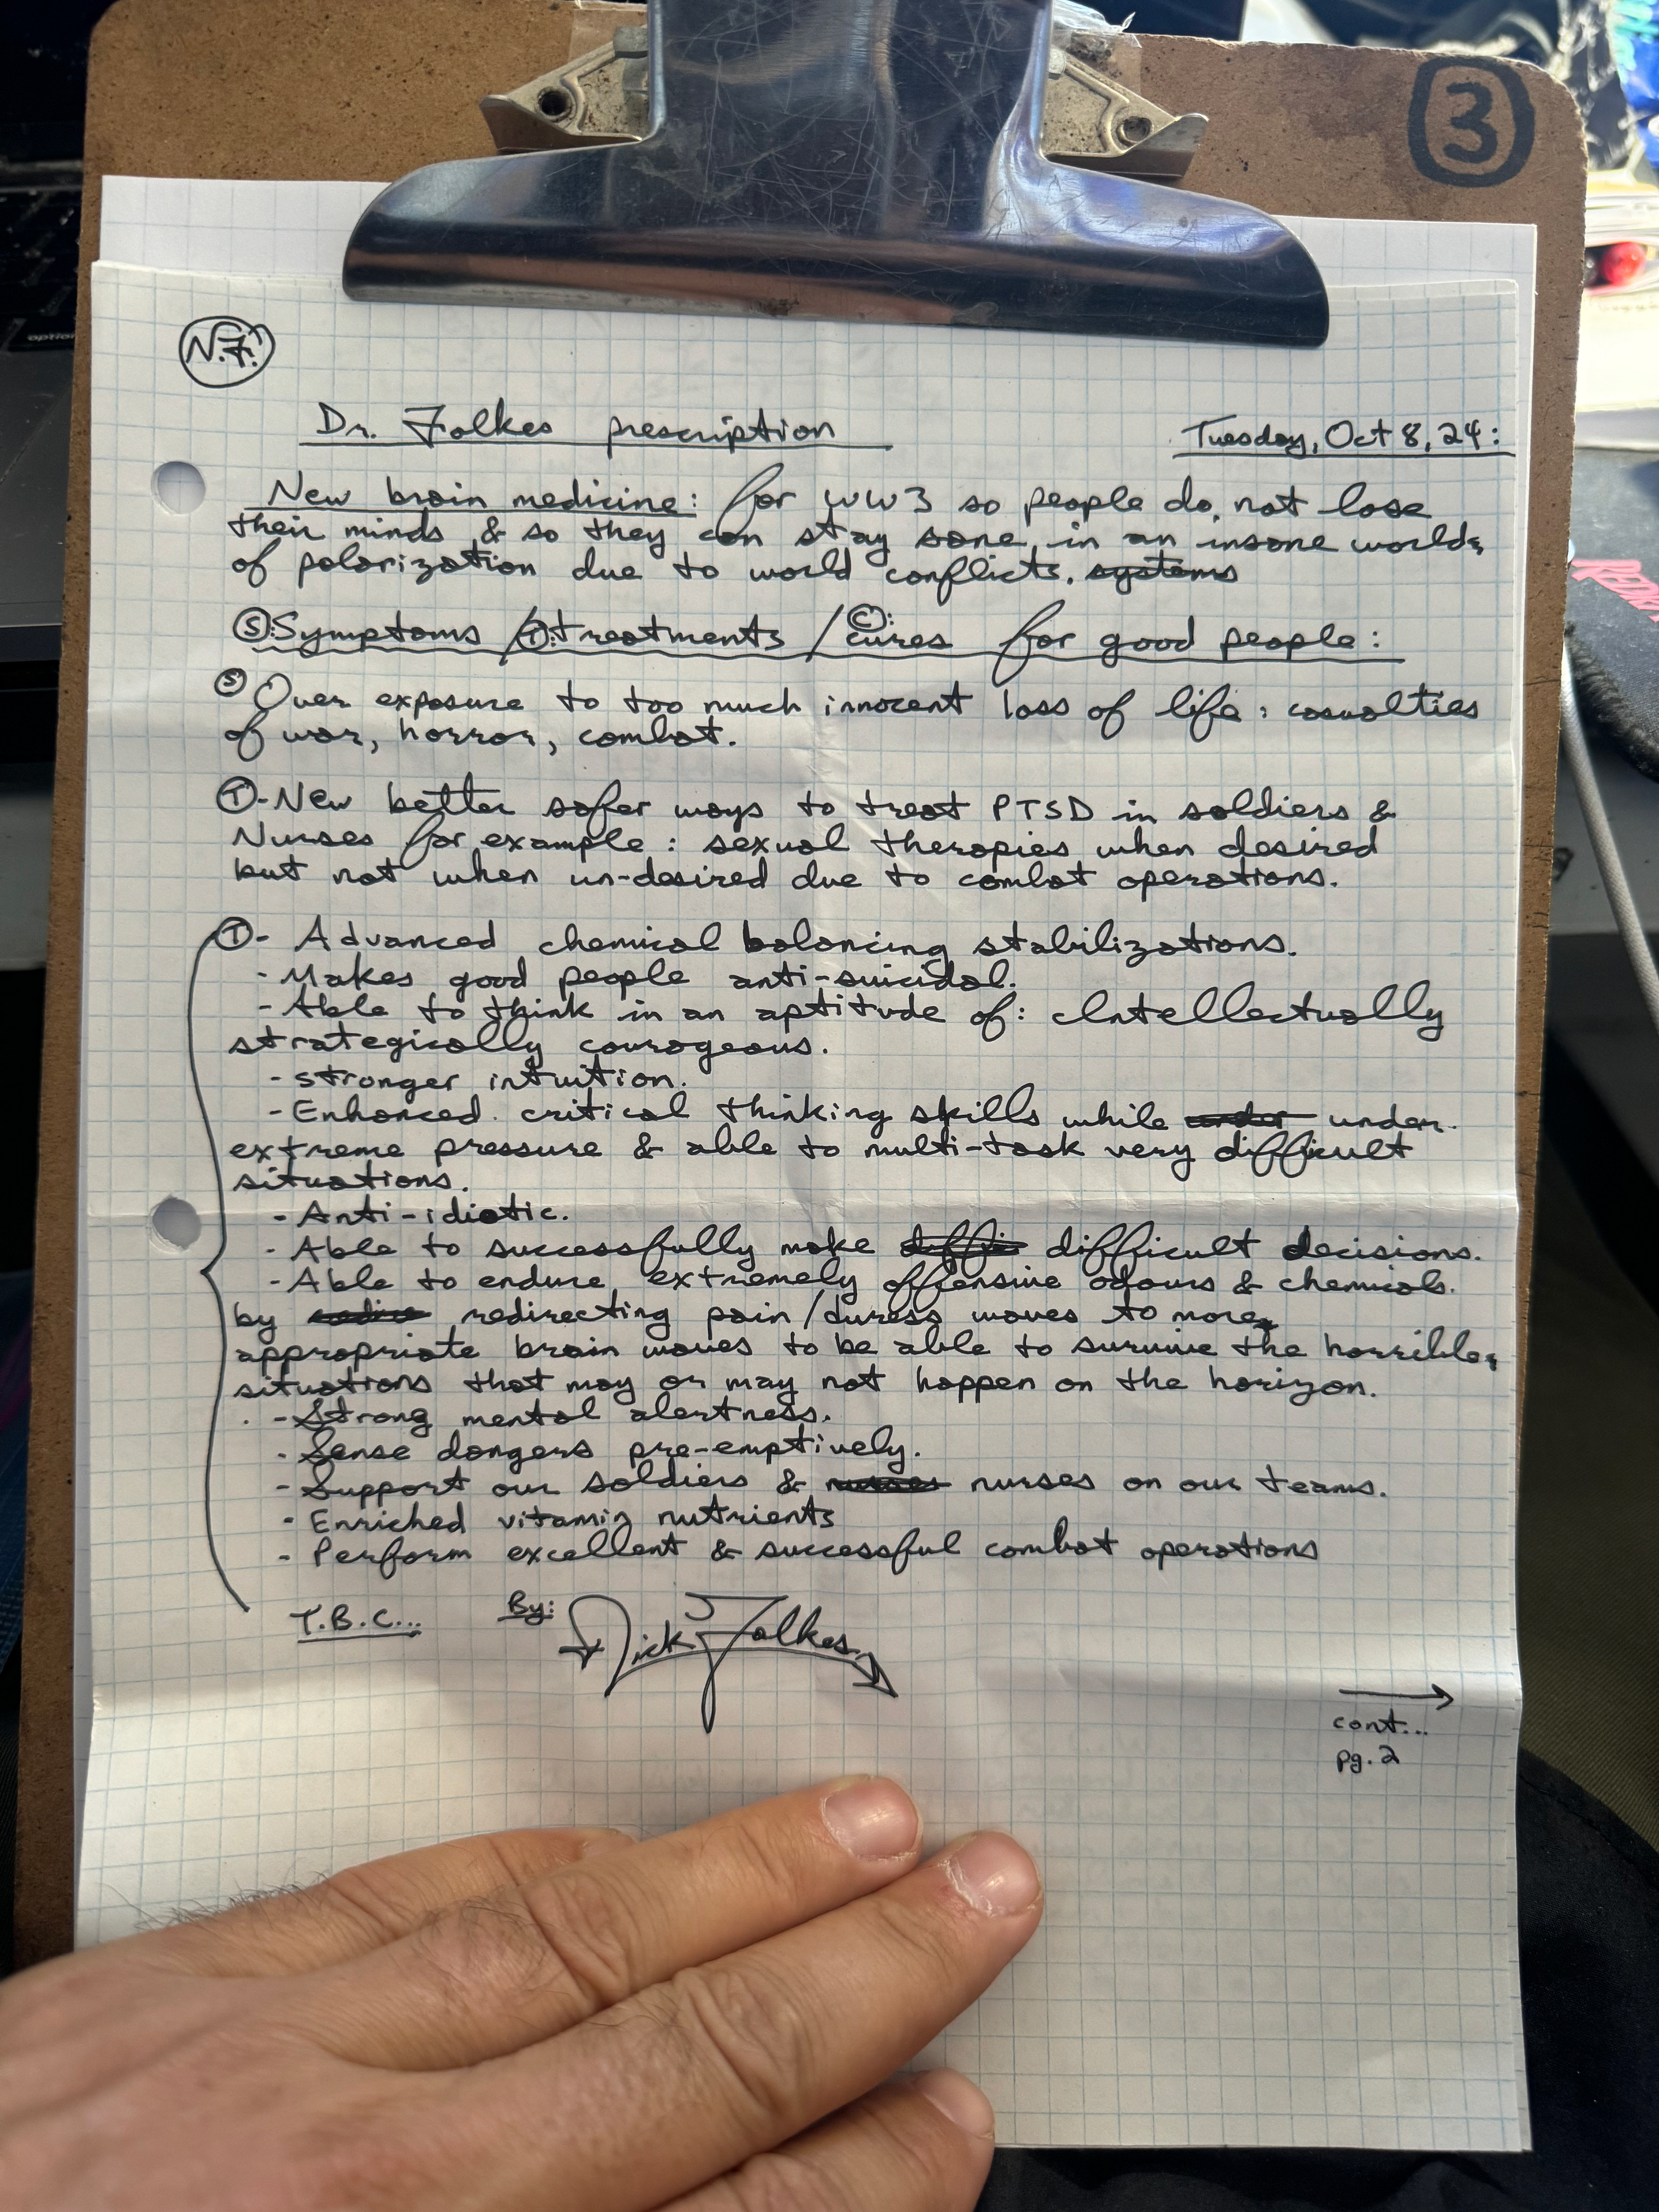 3
N.F.
Dr. Folkes prescription
Tuesday, Oct 8, 24:
New brain medicine: for WW3 so people do not lose
their minds & so they can stay sane in an insane world
of polarization due to world conflicts. systems
S: Symptoms / T: treatments / C: cures for good people:
S Over exposure to too much innocent loss of life: casualties
of war, horror, combat.
T - New better safer ways to treat PTSD in soldiers &
Nurses for example: sexual therapies when desired
but not when un-desired due to combat operations.
T - Advanced chemical balancing stabilizations.
- Makes good people anti-suicidal.
- Able to think in an aptitude of: Intellectually
strategically courageous.
- stronger intuition.
- Enhanced critical thinking skills while under under
extreme pressure & able to multi-task very difficult
situations.
- Anti-idiotic.
- Able to successfully make diffic difficult decisions.
- Able to endure extremely offensive odours & chemicals.
by redirecting pain/duress waves to more
appropriate brain waves to be able to survive the horrible
situations that may or may not happen on the horizon.
- Strong mental alertness.
- Sense dangers pre-emptively.
- Support our soldiers & nurses nurses on our teams.
- Enriched vitamin nutrients
- Perform excellent & successful combat operations
T.B.C...
By: Nick Folkes
cont...
pg. 2
option